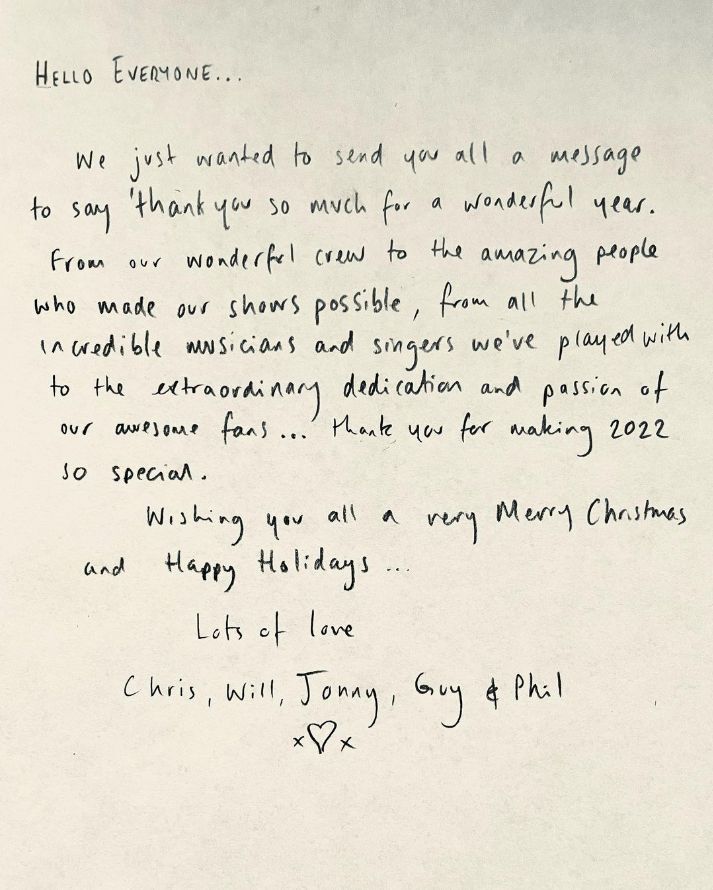 HELLO EVERYONE...
We just wanted to send you all a message
to say 'thank you so much for a wonderful year.
From our wonderful crew to the amazing people
who made our shows possible, from all the
incredible musicians and singers we've played with
to the extraordinary dedication and passion of
our awesome fans... thank you for making 2022
so special.
Wishing you all a very Merry Christmas
and Happy Holidays...
Lots of love
Chris, Will, Jonny, Guy & Phil
x♡x